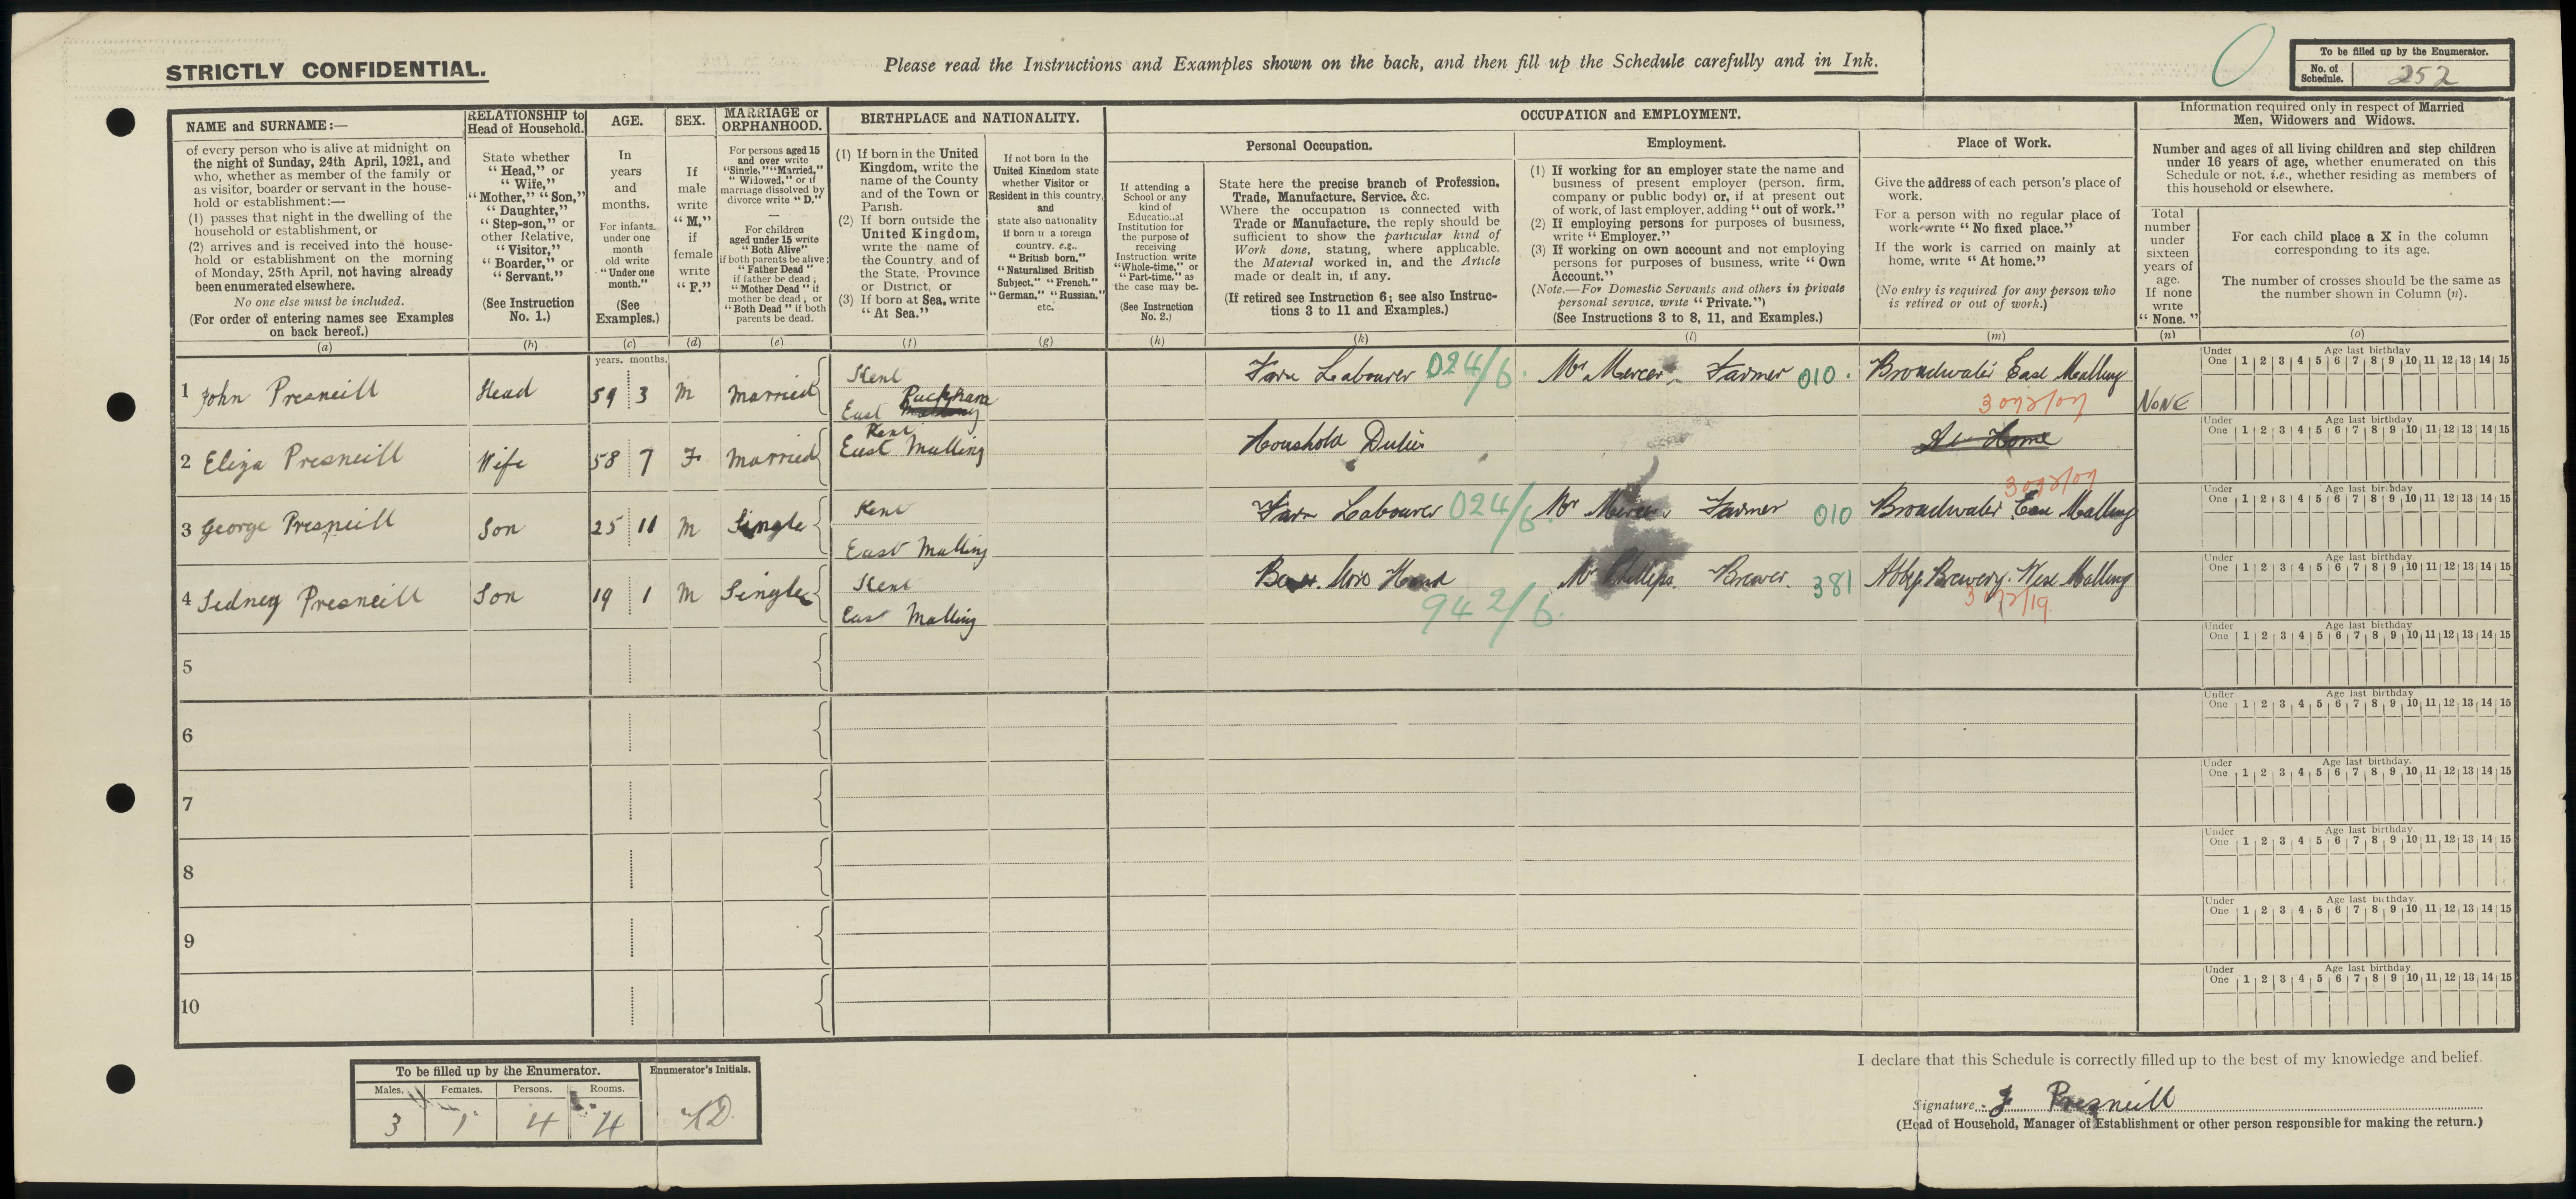 STRICTLY CONFIDENTIAL.
Please read the Instructions and Examples shown on the back, and then fill up the Schedule carefully and in Ink.
To be filled up by the Enumerator.
No. of Schedule. 252
NAME and SURNAME:—
of every person who is alive at midnight on
the night of Sunday, 24th April, 1921, and
who, whether as member of the family or
as visitor, boarder or servant in the house-
hold or establishment:—
(1) passes that night in the dwelling of the
household or establishment, or
(2) arrives and is received into the house-
hold or establishment on the morning
of Monday, 25th April, not having already
been enumerated elsewhere.
No one else must be included.
(For order of entering names see Examples
on back hereof.)
(a)
RELATIONSHIP to
Head of Household.
State whether
"Head," or
"Wife,"
"Mother," "Son,"
"Daughter,"
"Step-son," or
other Relative,
"Visitor,"
"Boarder," or
"Servant."
(See Instruction
No. 1.)
(b)
AGE.
In
years
and
months.
For infants
under one
month
old write
"Under one
month."
(See
Examples.)
(c)
SEX.
If
male
write
"M,"
if
female
write
"F."
(d)
MARRIAGE or
ORPHANHOOD.
For persons aged 15
and over write
"Single," "Married,"
"Widowed," or if
marriage dissolved by
divorce write "D."
—
For children
aged under 15 write
"Both Alive"
if both parents be alive;
"Father Dead"
if father be dead;
"Mother Dead" if
mother be dead; or
"Both Dead" if both
parents be dead.
(e)
BIRTHPLACE and NATIONALITY.
(1) If born in the United
Kingdom, write the
name of the County
and of the Town or
Parish.
(2) If born outside the
United Kingdom,
write the name of
the Country, and of
the State, Province
or District, or
(3) If born at Sea, write
"At Sea."
(f)
If not born in the
United Kingdom state
whether Visitor or
Resident in this country,
and
state also nationality
if born in a foreign
country, e.g.,
"British born,"
"Naturalised British
Subject," "French,"
"German," "Russian,"
etc.
(g)
OCCUPATION and EMPLOYMENT.
Personal Occupation.
If attending a
School or any
kind of
Educational
Institution for
the purpose of
receiving
Instruction write
"Whole-time," or
"Part-time," as
the case may be.
(See Instruction
No. 2.)
(h)
State here the precise branch of Profession,
Trade, Manufacture, Service, &c.
Where the occupation is connected with
Trade or Manufacture, the reply should be
sufficient to show the particular kind of
Work done, stating, where applicable,
the Material worked in, and the Article
made or dealt in, if any.
(If retired see Instruction 6; see also Instruc-
tions 3 to 11 and Examples.)
(k)
Employment.
(1) If working for an employer state the name and
business of present employer (person, firm,
company or public body) or, if at present out
of work, of last employer, adding "out of work."
(2) If employing persons for purposes of business,
write "Employer."
(3) If working on own account and not employing
persons for purposes of business, write "Own
Account."
(Note.—For Domestic Servants and others in private
personal service, write "Private.")
(See Instructions 3 to 8, 11, and Examples.)
(l)
Place of Work.
Give the address of each person's place of
work.
For a person with no regular place of
work write "No fixed place."
If the work is carried on mainly at
home, write "At home."
(No entry is required for any person who
is retired or out of work.)
(m)
Information required only in respect of Married
Men, Widowers and Widows.
Number and ages of all living children and step children
under 16 years of age, whether enumerated on this
Schedule or not, i.e., whether residing as members of
this household or elsewhere.
Total
number
under
sixteen
years of
age.
If none
write
"None."
(n)
For each child place a X in the column
corresponding to its age.
The number of crosses should be the same as
the number shown in Column (n).
(o)
years. months.
1 John Presneill Head 59 3 M Married Kent East Peckham Farm Labourer 024/6 Mr Mercer Farmer 010 Broadwater East Malling NONE
2 Eliza Presneill Wife 58 7 F Married Kent East Malling Houshold Duties At Home
3 George Presneill Son 25 11 M Single Kent East Malling Farm Labourer 024/6 Mr Mercer Farmer 010 Broadwater East Malling
4 Sidney Presneill Son 19 1 M Single Kent East Malling 942/6 Mr Phillips Brewer. 381 Abbey Brewery. West Malling
5
6
7
8
9
10
Under One 1 2 3 4 5 6 7 8 9 10 11 12 13 14 15
Age last birthday
To be filled up by the Enumerator.
Males. Females. Persons. Rooms.
3 1 4 4
Enumerator's Initials.
I declare that this Schedule is correctly filled up to the best of my knowledge and belief.
Signature J Presneill
(Head of Household, Manager of Establishment or other person responsible for making the return.)